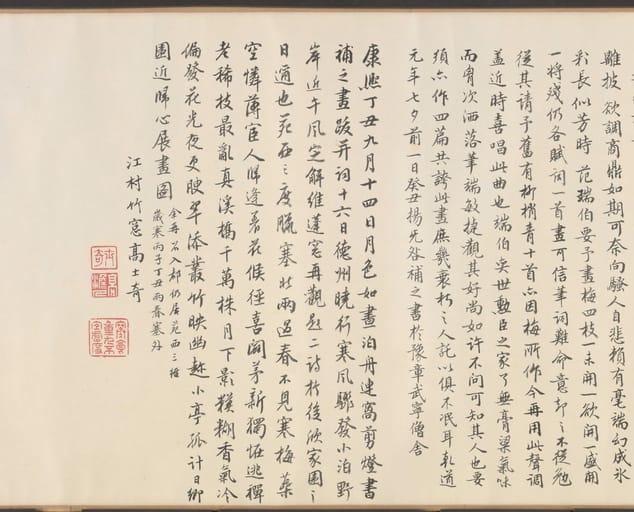 雖披欲調商鼎如期可奈向騷人自悲賴有毫端幻成冰
彩長似芳時范端伯要予畫梅四枝一未開一欲開一盛開
一將殘仍各賦詞一首畫可信筆詞難命意却之不從勉
從其請予舊有柳梢青十首亦因梅所作今再用此聲調
蓋近時喜唱此曲也端伯奕世勳臣之家了無膏粱氣味
而胷次洒落筆端敏捷觀其好尚如許不問可知其人也要
須亦作四篇共誇此畫庶幾衰朽之人託以俱不泯耳乾道
元年七夕前一日癸丑揚无咎補之書於豫章武寧僧舍
康熙丁丑九月十四日月色如晝泊舟連窩剪燈書
補之畫跋并詞十六日德州曉行寒風驟發小泊野
岸近午風定解維蓬窓再觀題二詩於後欣家園之
日邇也苑西三度臘塞北兩過春不見寒梅蘂
空憐薄宦人歸逢著花候徑喜闢茅新獨怪逃禪
老稀枝最亂真溪橋千萬株月下影模糊香氣冷
偏發花光夜更腴平添叢竹映幽趣小亭孤計日鄉
園近歸心展畫圖
余再召入都仍居苑西三
歲寒丙子丁丑兩春塞外
江村竹窓高士奇